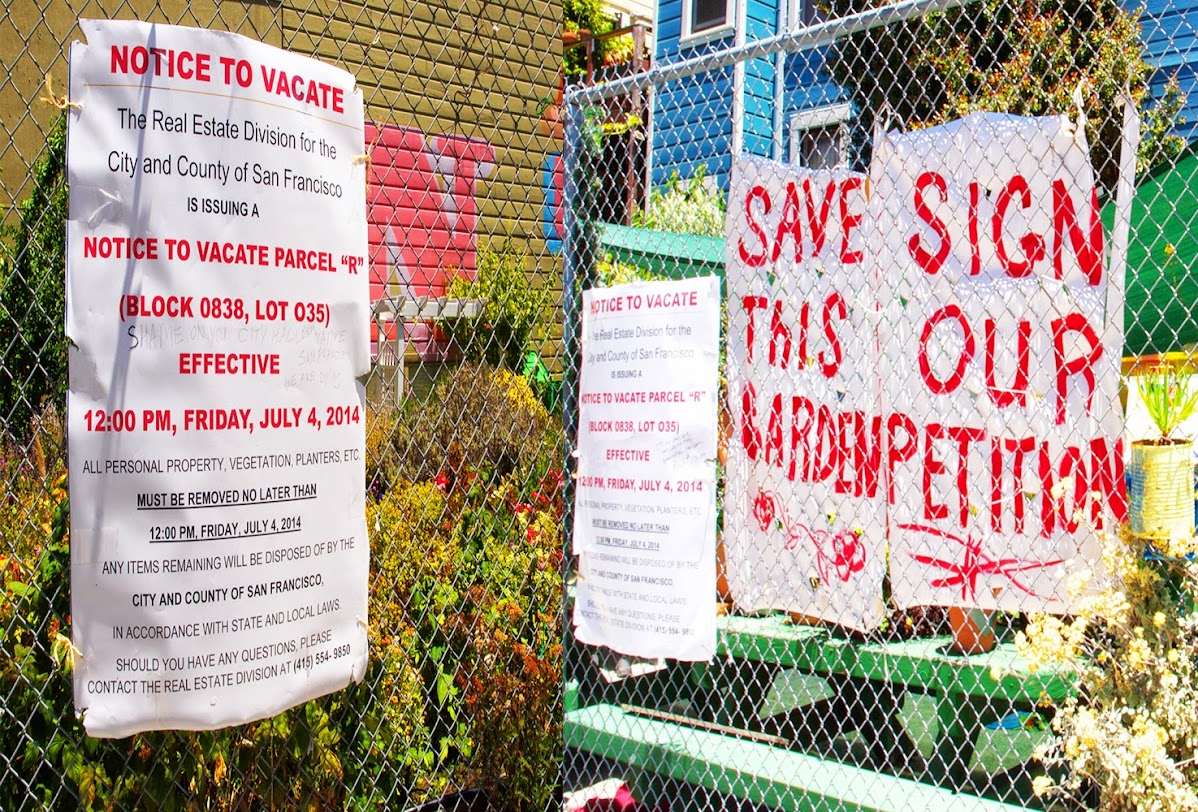 NOTICE TO VACATE
The Real Estate Division for the
City and County of San Francisco
IS ISSUING A
NOTICE TO VACATE PARCEL “R”
(BLOCK 0838, LOT O35)
SHAME ON YOU CITY HALL
EFFECTIVE
12:00 PM, FRIDAY, JULY 4, 2014
ALL PERSONAL PROPERTY, VEGETATION, PLANTERS, ETC.
MUST BE REMOVED NO LATER THAN
12:00 PM, FRIDAY, JULY 4, 2014
ANY ITEMS REMAINING WILL BE DISPOSED OF BY THE
CITY AND COUNTY OF SAN FRANCISCO,
IN ACCORDANCE WITH STATE AND LOCAL LAWS.
SHOULD YOU HAVE ANY QUESTIONS, PLEASE
CONTACT THE REAL ESTATE DIVISION AT (415) 554- 9850
NOTICE TO VACATE
The Real Estate Division for the
City and County of San Francisco
IS ISSUING A
NOTICE TO VACATE PARCEL “R”
(BLOCK 0838, LOT O35)
EFFECTIVE
12:00 PM, FRIDAY, JULY 4, 2014
ALL PERSONAL PROPERTY, VEGETATION, PLANTERS, ETC.
MUST BE REMOVED NO LATER THAN
12:00 PM, FRIDAY, JULY 4, 2014
ITEMS REMAINING WILL BE DISPOSED OF BY THE
CITY AND COUNTY OF SAN FRANCISCO,
ACCORDANCE WITH STATE AND LOCAL LAWS.
SHOULD YOU HAVE ANY QUESTIONS, PLEASE
CONTACT THE REAL ESTATE DIVISION AT (415) 554- 9850
SAVE
THIS
GARDEN
SIGN
OUR
PETITION